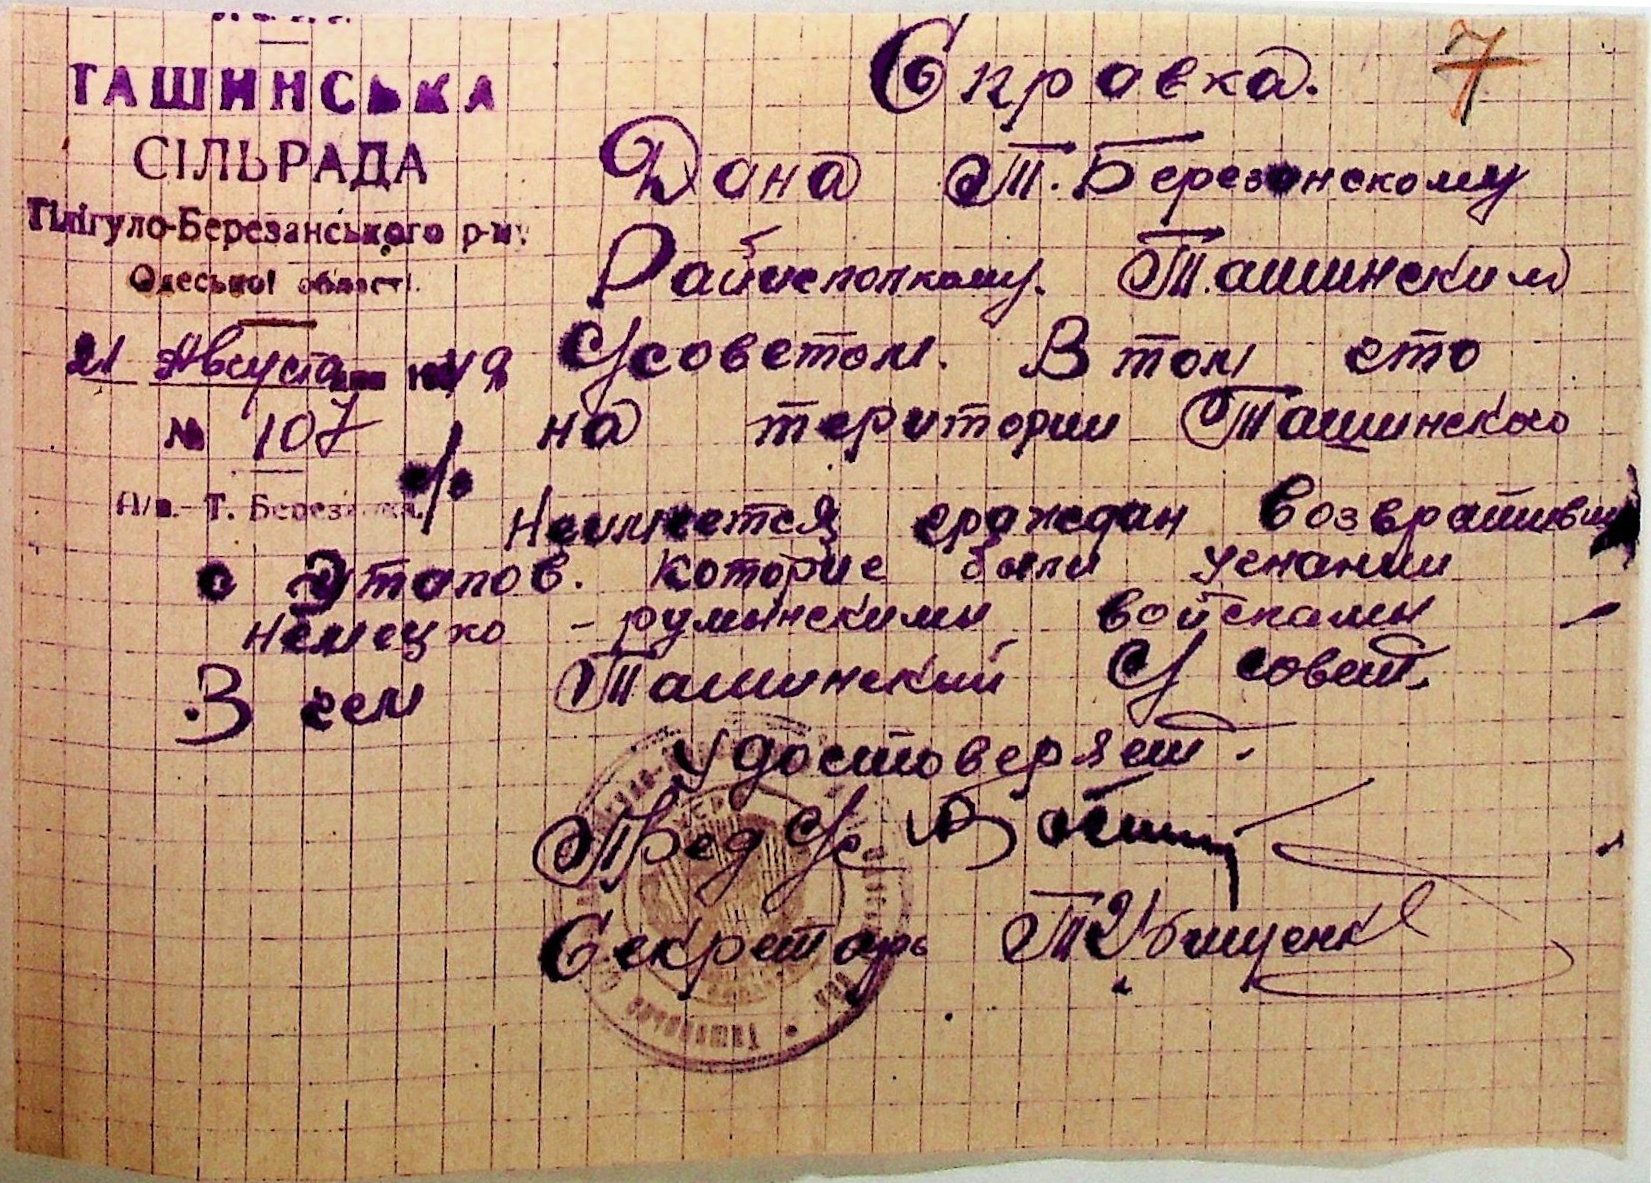 Справка. 7
ТАШИНСЬКА
СІЛЬРАДА
Тілігуло-Березанського р-ну
Одеської області.
21 Августа 1949
№ 107
П/в. Т. Березанка.
Дана Т. Березанскому
Райисполкому. Ташинским
С/советом. В том сто
на територии Ташинского
с/с Неимеется граждан Возвративши
с Этапов. которие были угнании
немецко - румынскими войсками -
В чем Ташинский С/совет
удостоверяет.
Пред С/с
Секретарь
Ташинська